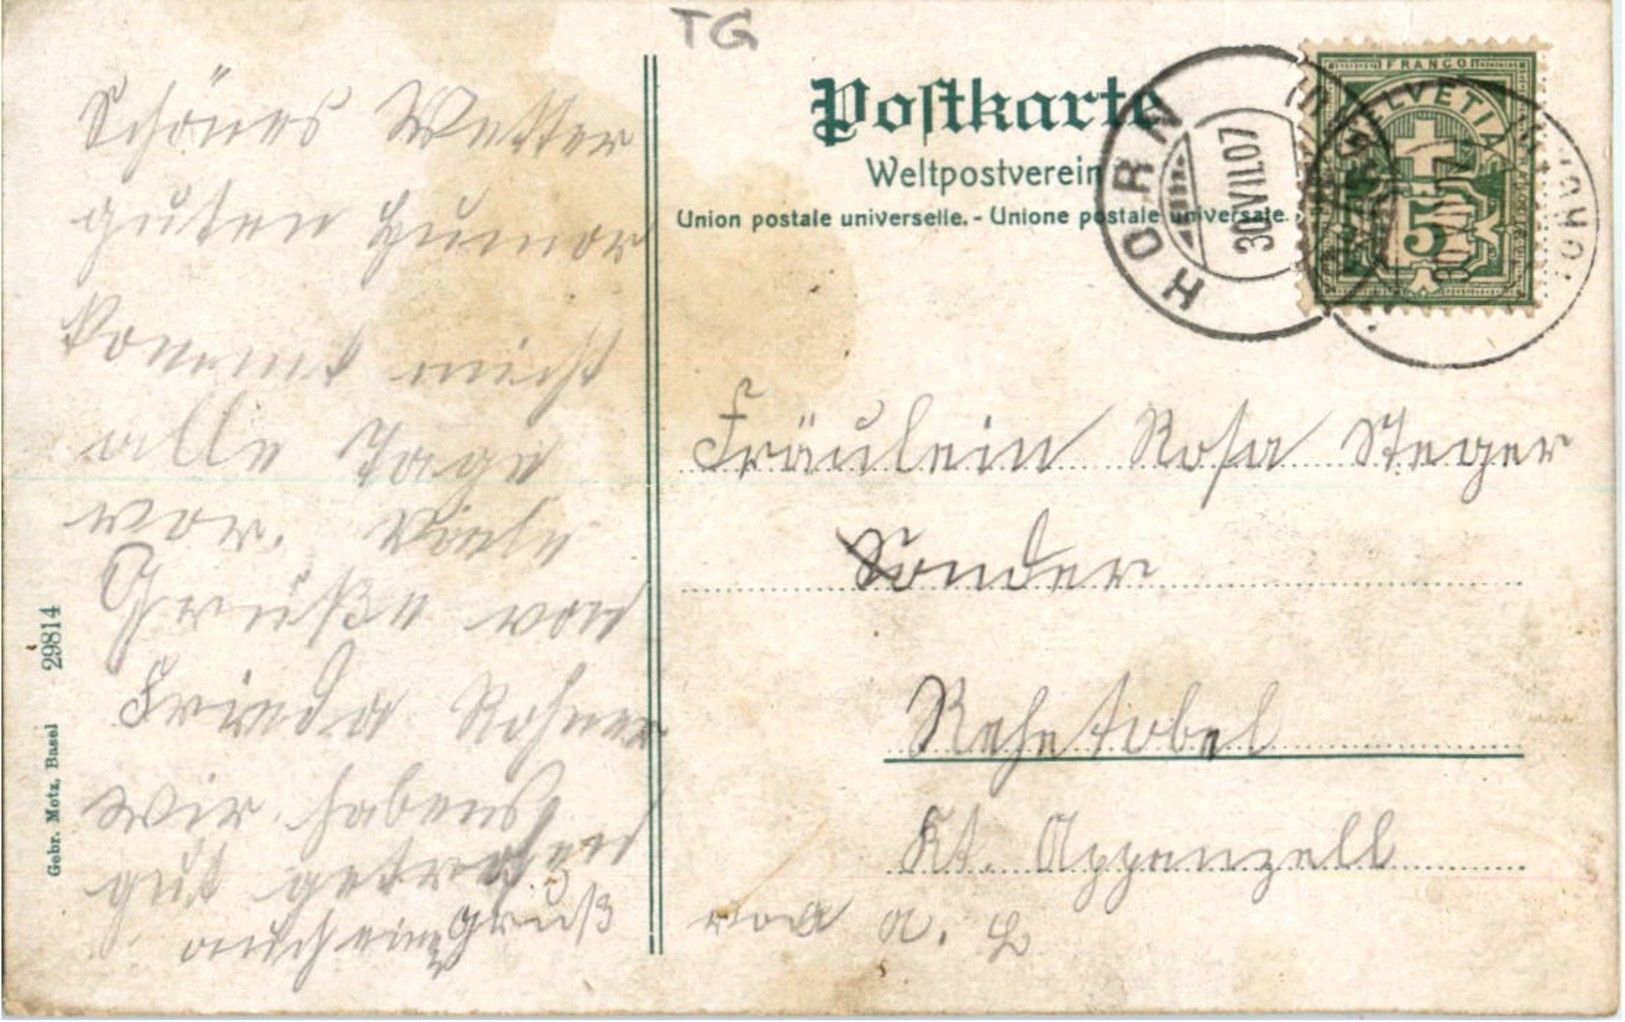 TG
Postkarte
Weltpostverein
Union postale universelle. - Unione postale universale.
HORN
30.VII.07
FRANCO
HELVETIA
5
Schönes Wetter
guten Humor
kommt nicht
alle Tage
vor. Viele
Grüße von
Frieda Rohner
wir habens
gut getroffen
auch ein Gruß von a. L
Fräulein Rosa Steger
Sonder
Rehetobel
Kt. Appenzell
Gebr. Metz, Basel 29814